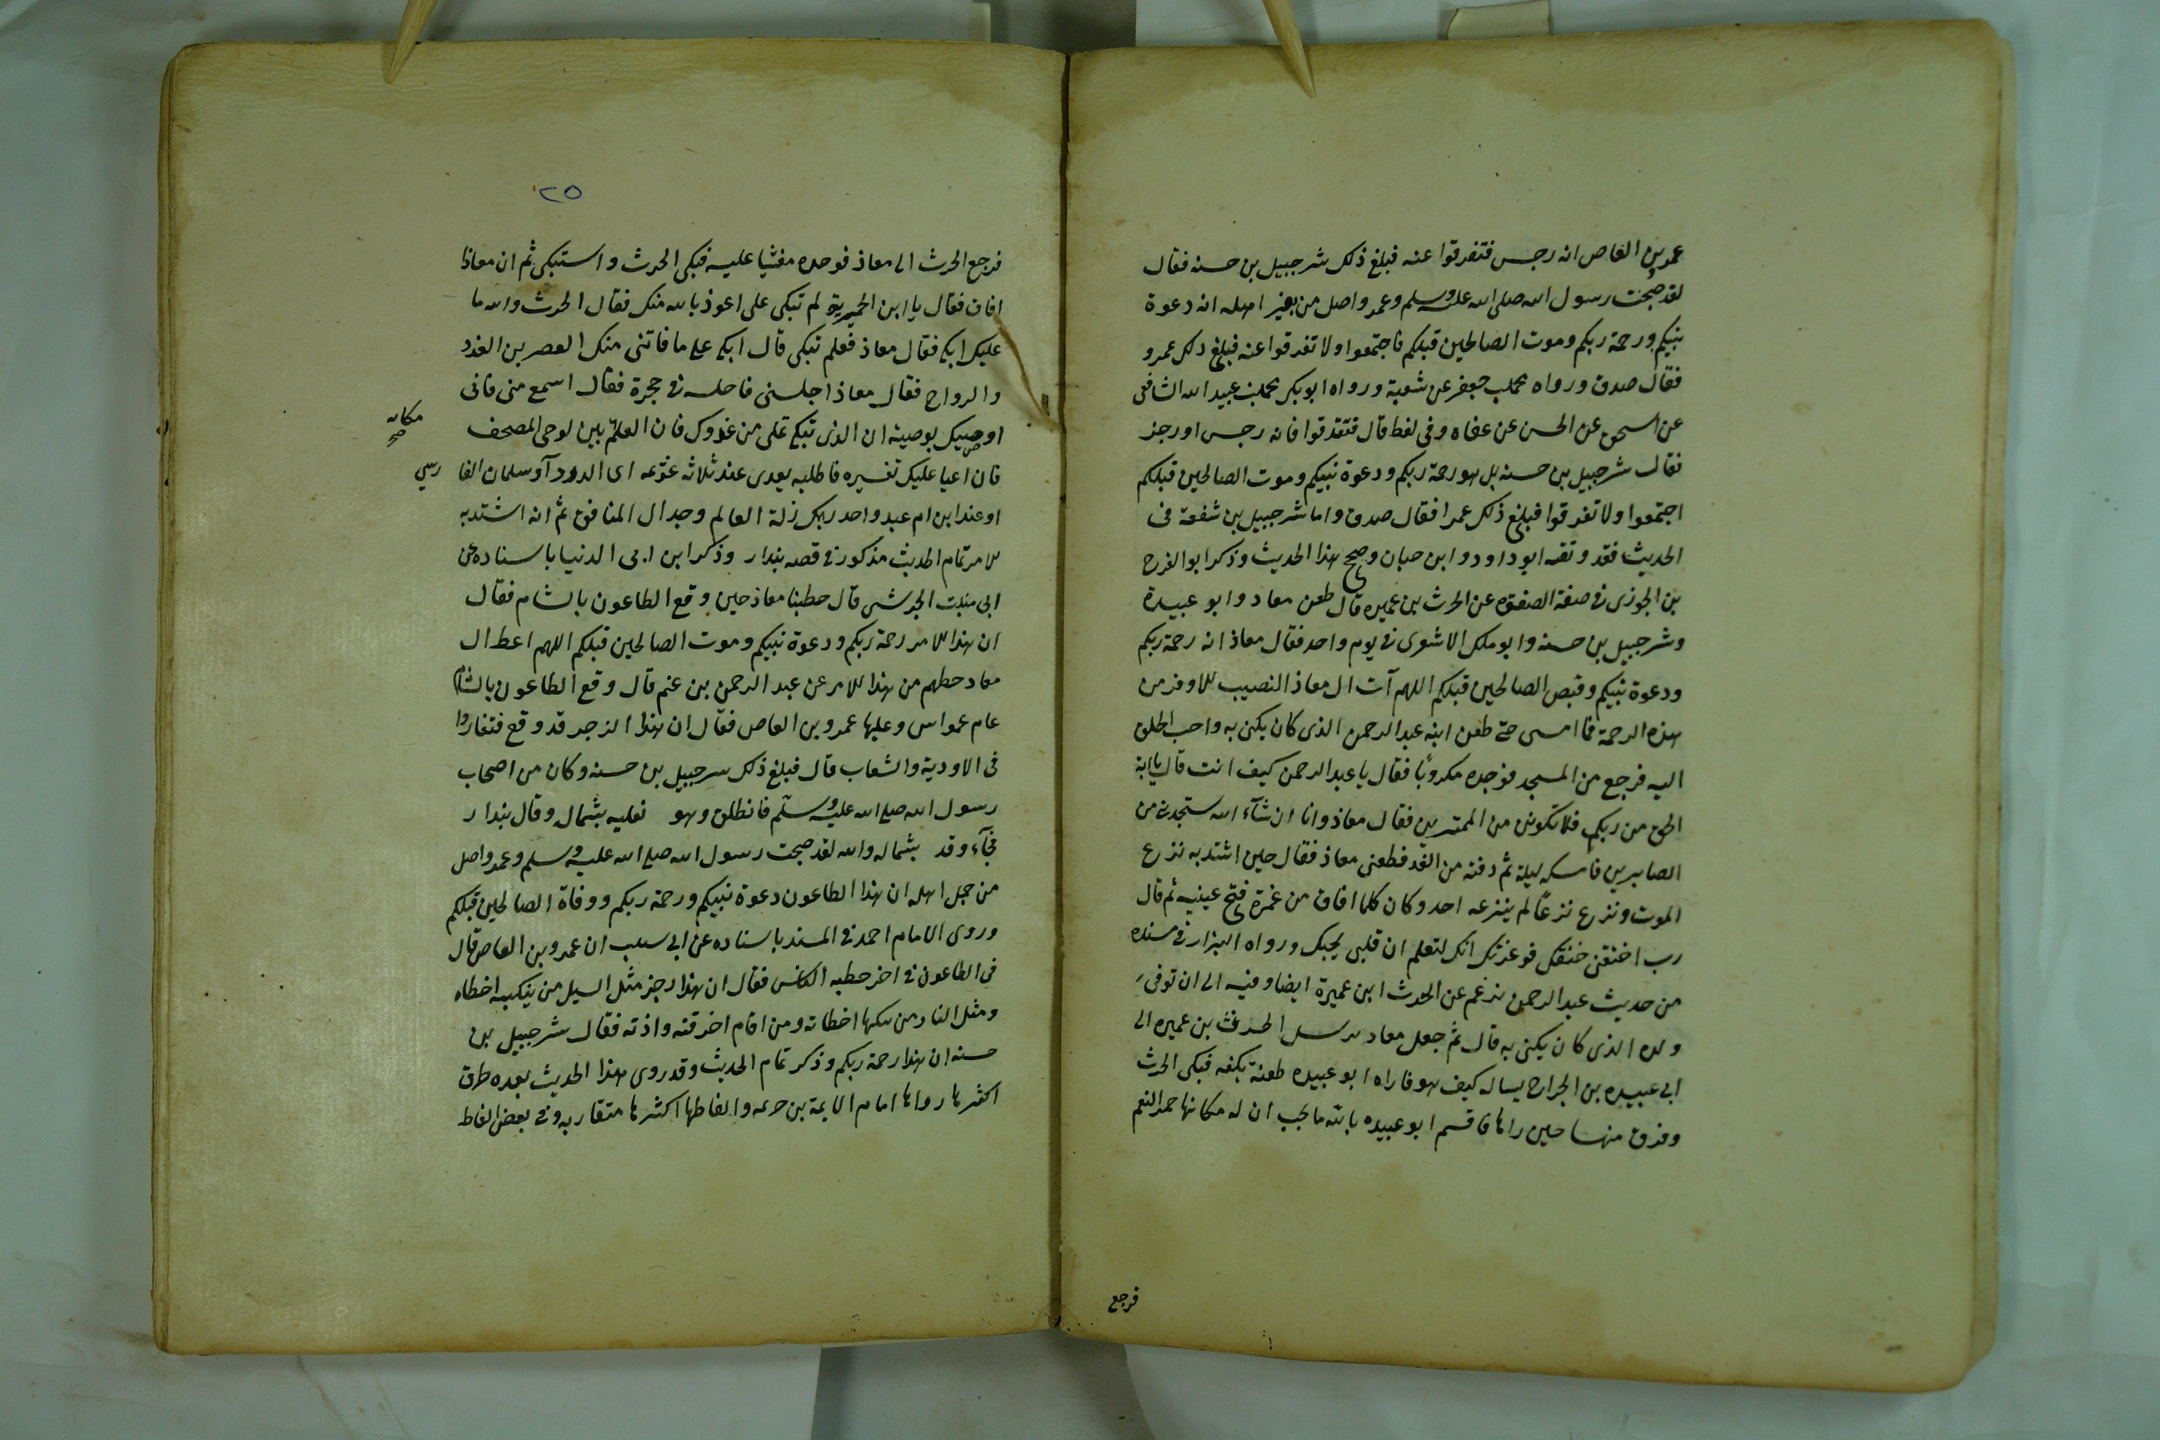 عمر بن العاص انه رجس فتفرقوا عنه فبلغ ذلك شرحبيل بن حسنه فقال
لقد صحبت رسول الله صلى الله عليه وسلم وعمرو اضل من بعير اهله انه دعوة
نبيكم ورحمة ربكم وموت الصالحين قبلكم فاجتمعوا ولا تفرقوا عنه فبلغ ذلك عمرو
فقال صدق ورواه محمد بن جعفر عن شعبة ورواه ابو بكر محمد بن عبيد الله الشافعى
عن اسحق عن الحسن عن عفان وفى لفظ قال فتفرقوا فانه رجس او رجز
فقال شرحبيل بن حسنه بل هو رحمة ربكم ودعوة نبيكم وموت الصالحين قبلكم
اجتمعوا ولا تفرقوا فبلغ ذلك عمرا فقال صدق واما شرحبيل بن شفعة فى
الحديث فقد وثقه ابو داود وابن حبان وصحح هذا الحديث وذكر ابو الفرج
بن الجوزى فى صفة الصفوه عن الحرث بن عميره قال طعن معاد وابو عبيدة
وشرحبيل بن حسنه وابو ملك الاشعرى فى يوم واحد فقال معاذ انه رحمة ربكم
ودعوة نبيكم وقبض الصالحين قبلكم اللهم آت ال معاذ النصيب الاوفر من
هذه الرحمة فما امسى حتى طعن ابنه عبد الرحمن الذى كان يكنى به واحب الخلق
اليه فرجع من المسجد فوجده مكروبًا فقال يا عبد الرحمن كيف انت قال يا ابة
الحق من ربكم فلا تكونن من الممترين فقال معاذ وانا ان شآء الله ستجدنى من
الصابرين فامسكه ليلة ثم دفنه من الغد فطعن معاذ فقال حين اشتد به نزع
الموت ونزع نزعًا لم ينزعه احد وكان كلما افاق من غمرة فتح عينيه ثم قال
رب اخنقنى خنقك فوعزتك انك لتعلم ان قلبى يحبك ورواه البزار فى مسنده
من حديث عبد الرحمن بن غنم عن الحرث ابن عميرة ايضا وفيه الى ان توفى
ولده الذى كان يكنى به قال ثم جعل معاد يرسل الحرث بن عميره الى
ابى عبيده بن الجراح يساله كيف هو فاراه ابو عبيده طعنة بكفه فبكى الحرث
وفرق منها حين راها فاقسم ابو عبيده بالله ما يحب ان له مكانها حمر النعم
فرجع
٢٥
فرجع الحرث الى معاذ فوجده مغشيا عليه فبكى الحرث واستبكى ثم ان معاذا
افاق فقال يا ابن الحميرية لم تبكى على اعوذ بالله منك فقال الحرث والله ما
عليك ابكى فقال معاذ فعلم تبكى قال ابكى على ما فاتنى منك العصرين الغدو
والرواح فقال معاذ اجلسنى فاجلسه فى حجرة فقال اسمع منى فانى
اوصيك بوصية ان الذى تبكى على من غدوك فان العلم بين لوحى المصحف
مكانه صح
فان اعيا عليك تفسيره فاطلبه بعدى عند ثلاثة عويمر ابى الدردآ وسلمان الفا
رسي
او عند ابن ام عبد واحذرك زلة العالم وجدال المنافق ثم انه اشتد به
الامر تمام الحديث مذكور فى قصه بندار وذكر ابن ابى الدنيا باسناده عن
ابى منيب الجرشى قال خطبنا معاذ حين وقع الطاعون بالشام فقال
ان هذا الامر رحمة ربكم ودعوة نبيكم وموت الصالحين قبلكم اللهم اعط ال
معاد حظهم من هذا الامر عن عبد الرحمن بن غنم قال وقع الطاعون بالشام
عام عمواس وعليها عمرو بن العاص فقال ان هذا الزجر قد وقع فتفاروا
فى الاودية والشعاب قال فبلغ ذلك سرحبيل بن حسنه وكان من اصحاب
رسول الله صلى الله عليه وسلم فانطلق وهو نعليه بشماله وقال بندار
فجآء وقد بشماله والله لقد صحبت رسول الله صلى الله عليه وسلم وعمرو اضل
من جمل اهله ان هذا الطاعون دعوة نبيكم ورحمة ربكم ووفاة الصالحين قبلكم
وروى الامام احمد فى المسند باسناده عن ابى منيب ان عمرو بن العاص قال
فى الطاعون فى اخر خطبه الناس فقال ان هذا رجز مثل السيل من ينكبه اخطاه
ومثل النار من ينكبها اخطاته ومن اقام احرقته واذته فقال شرحبيل بن
حسنه ان هذا رحمة ربكم وذكر تمام الحديث وقد روى هذا الحديث بعده طرق
اكثرها رواها امام الايمة بن خزيمه والفاظها اكثرها متقاربه وفى بعض الفاظ